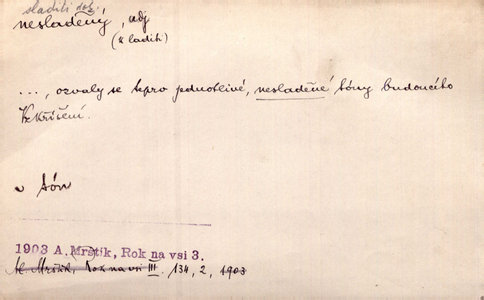 sladiti dok.
nesladěný, adj
(k laditi)
..., ozvaly se teprv jednotlivé, nesladěné tóny budoucího
Vzkříšení.
v tón
1903 A. Mrštík, Rok na vsi 3.
Al. Mrštík, Rok na vsi III. 134, 2, 1903